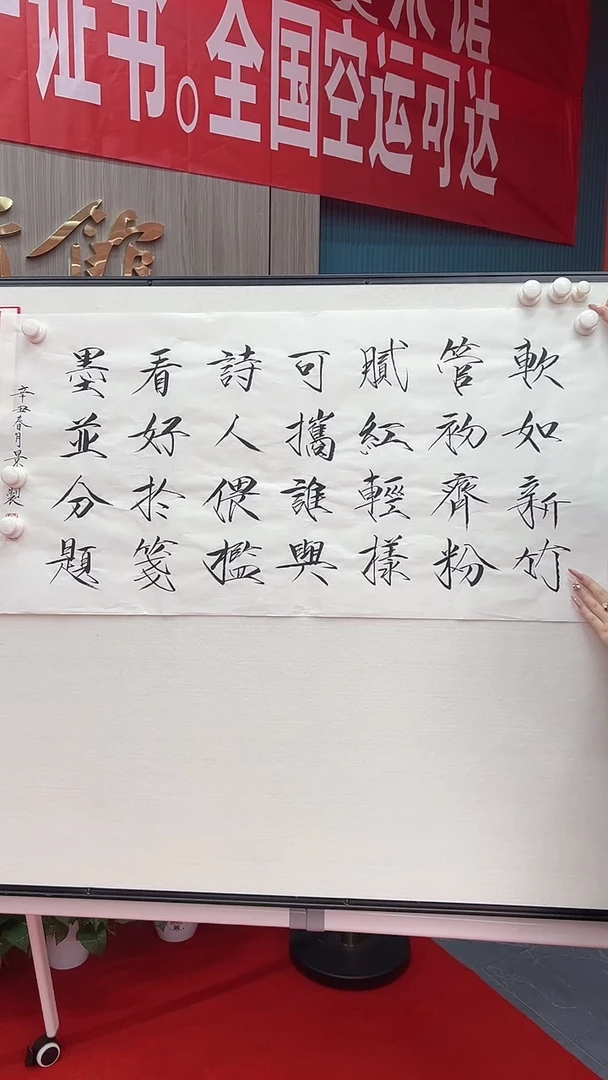 术馆
证书。全国空运可达
館
軟如新竹
管初齊粉
膩紅輕樣
可攜誰與
詩人偎檻
看好於箋
墨並分題
辛丑春月景製